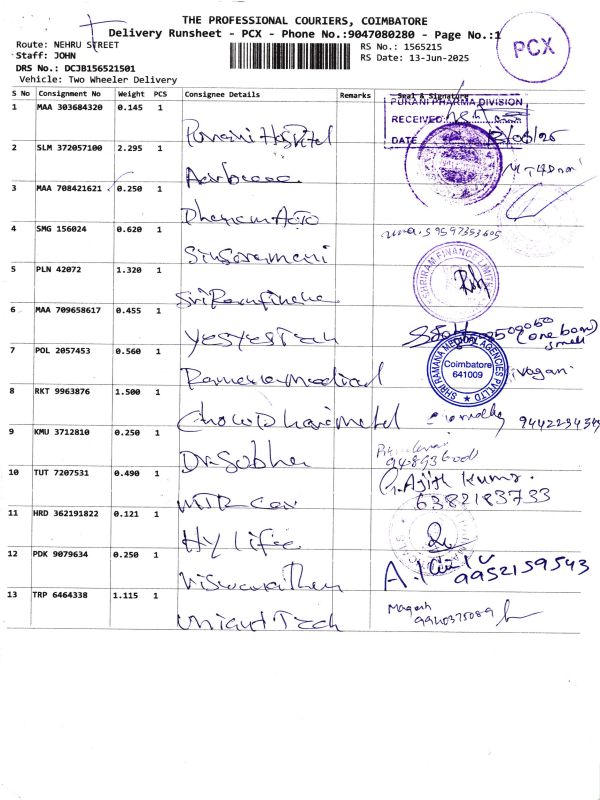 THE PROFESSIONAL COURIERS, COIMBATORE
Delivery Runsheet - PCX - Phone No.:9047080280 - Page No.:1
Route: NEHRU STREET
RS No.: 1565215
Staff: JOHN
RS Date: 13-Jun-2025
DRS No.: DCJB156521501
Vehicle: Two Wheeler Delivery
PCX
S No Consignment No Weight PCS Consignee Details Remarks Seal & Signature
1 MAA 303684320 0.145 1 Purani Hospital
PURANI PHARMA DIVISION
RECEIVED
DATE
2 SLM 372057100 2.295 1
3 MAA 708421621 0.250 1 Dhanam Auto
4 SMG 156024 0.620 1 9597353605
5 PLN 42072 1.320 1 Sri Ram finance
SHRIRAM FINANCE LIMITED
6 MAA 709658617 0.455 1 YesYesTech
(one box)
small
7 POL 2057453 0.560 1 Ramana medical
SHRI RAMANA MEDICAL AGENCIES PVT LTD
Coimbatore
641009
8 RKT 9963876 1.500 1 metal
9 KMU 3712810 0.250 1 Dr. Sobha
10 TUT 7207531 0.490 1 MTR Car Ajith Kumar
6382183733
11 HRD 362191822 0.121 1 Hy life
12 PDK 9079634 0.250 1 Viswanathan
9952159543
13 TRP 6464338 1.115 1 Tech Magesh
9940375089